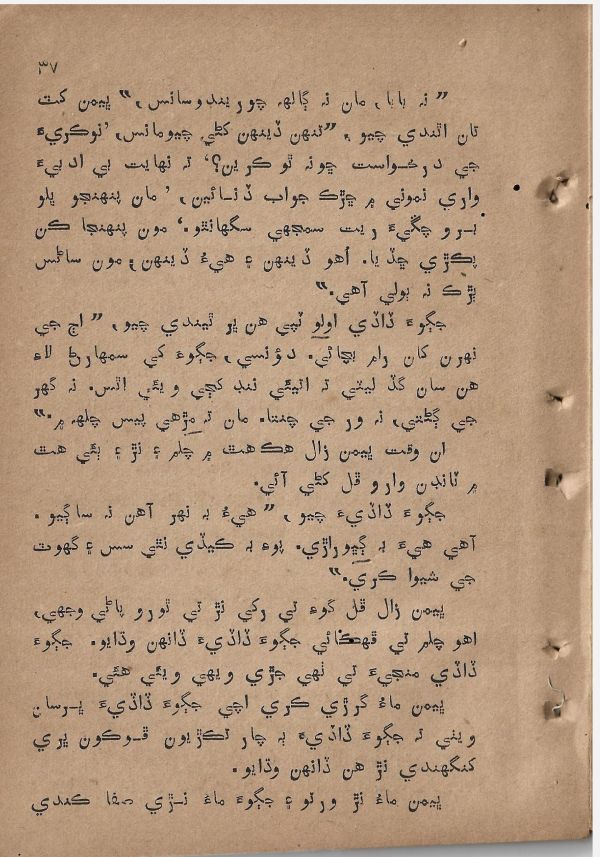 ٣٧
”نہ بابا، مان تہ ڳالهہ چوريندوسانس،“ ڀيمن کٽ
تان اٿندي چيو، ”تنهن ڏينهن کڻي چيومانس، ’نوڪريءَ
جي درخواست ڇونہ ٿو ڪرين؟‘ تہ نهايت بي ادبيءَ
واري نموني ۾ ڇڙڪ جواب ڏنائين، ’مان پنهنجو ڀلو
برو چڱيءَ ريت سمجهي سگهانٿو.‘ مون پنهنجا ڪن
پڪڙي ڇڏيا. اُهو ڏينهن ۽ هيءُ ڏينهن، مون ساڻس
ٻڙڪ نہ ٻولي آهي.“
جڳوءَ ڏاڏي اولو ٽپي هن ڀر ٿيندي چيو، ”اڄ جي
نهرن کان رام بچائي. دؤنسي، جڳوءَ کي سمهارڻ لاءِ
هن سان گڏ ليٽي تہ اتيئي ننڊ کڄي ويئي اٿس. نہ گهر
جي ڳڻتي، نہ ور جي چنتا. مان تہ مڙهي پيس چلهہ ۾.“
ان وقت ڀيمن زال هڪ هٿ ۾ چلم ۽ نڙ ۽ ٻئي هٿ
۾ ٽانڊن وارو ڦل کڻي آئي.
جڳوءَ ڏاڏيءَ چيو، ”هيءُ بہ نهر آهن نہ ساڳيو.
آهي هيءَ بہ ڳڀوراڙي. پوءِ بہ ڪيڏي نٿي سس ۽ گهوٽ
جي شيوا ڪري.“
ڀيمن زال ڦل کوءِ تي رکي نڙ تي ٿورو پاڻي وجهي،
اهو چلم تي ڦهڪائي جڳوءَ ڏاڏيءَ ڏانهن وڌايو. جڳوءَ
ڏاڏي منجيءَ تي ٺهي جڙي ويهي ويئي هئي.
ڀيمن ماءُ گرڙي ڪري اچي جڳوءَ ڏاڏيءَ ڀرسان
ويٺي تہ جڳوءَ ڏاڏيءَ بہ چار تڪڙيون ڦوڪون ڀري
کنگهندي نڙ هن ڏانهن وڌايو.
ڀيمن ماءُ نڙ ورتو ۽ جڳوءَ ماءُ نڙي صفا ڪندي